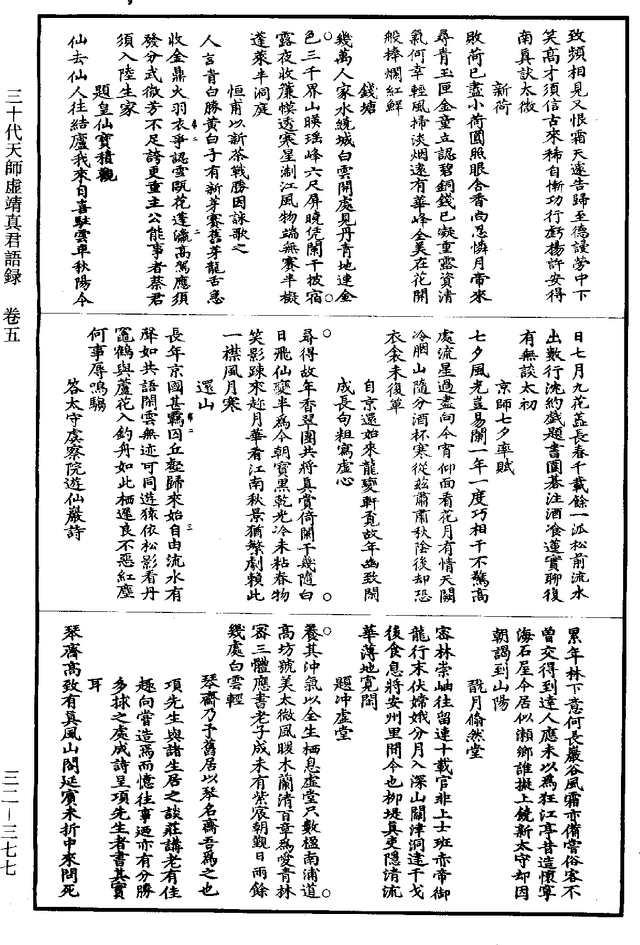 致頻相見又恨霜天遠告歸至德謾勞中下
笑高才須信古來稀自慚功行虧楊許安得
南真訣太微
新荷
敗荷已盡小荷圓照眼含香尚思憐月帶來
尋青玉匣金童立認碧銅錢已凝重露資清
氣何幸輕風掃淡烟遠有華峰全美在花開
般棒爛紅鮮
錢塘
幾萬人家水繞城白雲開處見丹青地連金
色三千界山暎瑶峰六尺屏曉凭闌干披宿
露夜收簾幙透寒星淛江風物端無賽半擬
蓬萊半洞庭
恒甫以新茶戰勝因詠歌之
人言青白勝黄白子有新芽賽舊芽龍舌急
收金鼎火羽衣爭認雪甌花蓬瀛高駕應須
發分武微芳不足誇更重主公能事者蔡君
須入陸生家
題皇仙寶積觀
仙去仙人往結廬我來自喜駐雲車秋陽今
日七月九花蕋長春千載餘一派松前流水
出數行沈約戲題書圍棊注酒飡蓮實聊復
有無談太初
京師七夕率賦
七夕風光豈易闌一年一度巧相干不驚高
處流星過盡向今宵仰面看花月有情天闊
冷胭山隨分酒杯寒從茲蕭肅秋陰後却恐
衣衾未復單
自京還始來龍變軒覔故年幽致閒
成長句粗寫虛心
尋得故年香翠園共將真賞倚闌干幾隨白
日飛仙變半爲今朝寶黒乾光冷未粘春物
笑影踈來趂月華看江南秋景猶繁劇賴此
一襟風月寒
還山
長年京國甚羈囚丘壑歸來始自由流水有
聲如共語閒雲無迹可同遊猿依松影看丹
竈鶴與蘆花入釣舟如此栖遲良不惡紅塵
何事辱鳴騶
答太守虞察院遊仙巖詩
累年林下意何長巖谷風霜亦備嘗俗客不
曾交得到達人應未以爲狂江亭昔造懷寧
海石屋今居似瀨鄉誰擬上饒新太守却因
朝謁到山陽
翫月翛然堂
密林崇岫往留連十載官非上士班亦帝御
龍行末伏嫦娥分月入深山關津洞達干戈
後食息將安州里間今也柳堤真吏隱清流
華薄地寛閒
題冲虛堂
養其沖氣以全生栖息虛堂尺數楹南浦道
高坊號美太微風暖木蘭清百章爲愛青林
密三體應書老子成未有紫宸朝覲日雨餘
幾處白雲輕
琴齋乃予舊居以琴名齋吾爲之也
項先生與諸生居之談莊講老有佳
趣向嘗造焉而憶往事迺亦有分勝
多捄之處成詩呈項先生者書其實
耳
琴齋高致有真風山閣延賓未折中來問死
三十代天師虛靖真君語録 卷五
三二—三七七